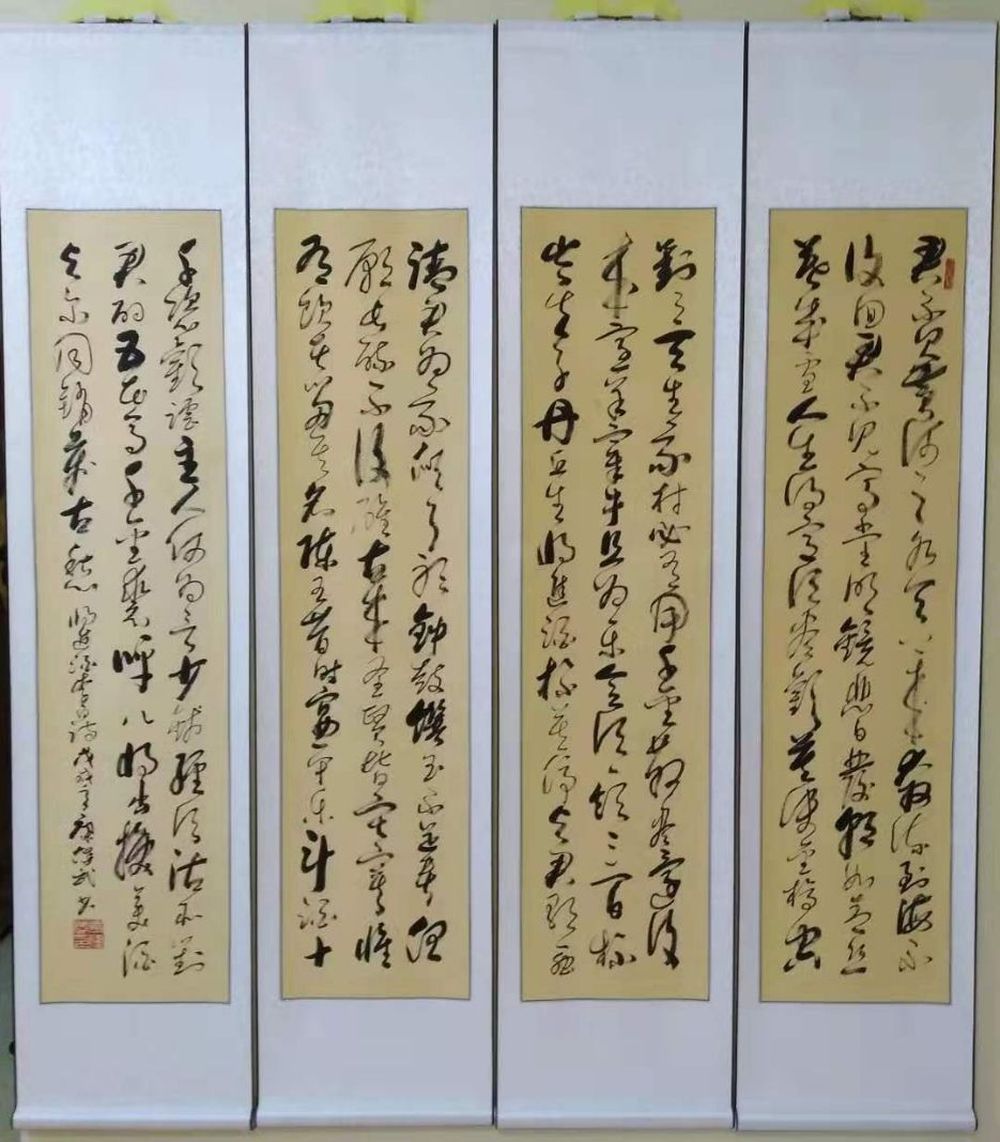 君不見黃河之水天上來奔流到海不
復回君不見高堂明鏡悲白髮朝如青絲
暮成雪人生得意須盡歡莫使金樽空
對月天生我材必有用千金散盡還復
來烹羊宰牛且为樂會須一飲三百杯
岑夫子丹丘生將進酒杯莫停与君歌一曲
請君为我傾耳聽鐘鼓饌玉不足貴但
願長醉不復醒古來聖賢皆寂寞惟
有飲者留其名陳王昔時宴平樂斗酒十
千恣歡謔主人何为言少錢徑須沽取對
君酌五花馬千金裘呼兒將出換美酒
与尔同銷萬古愁 將進酒李白詩 戊戌年 武書